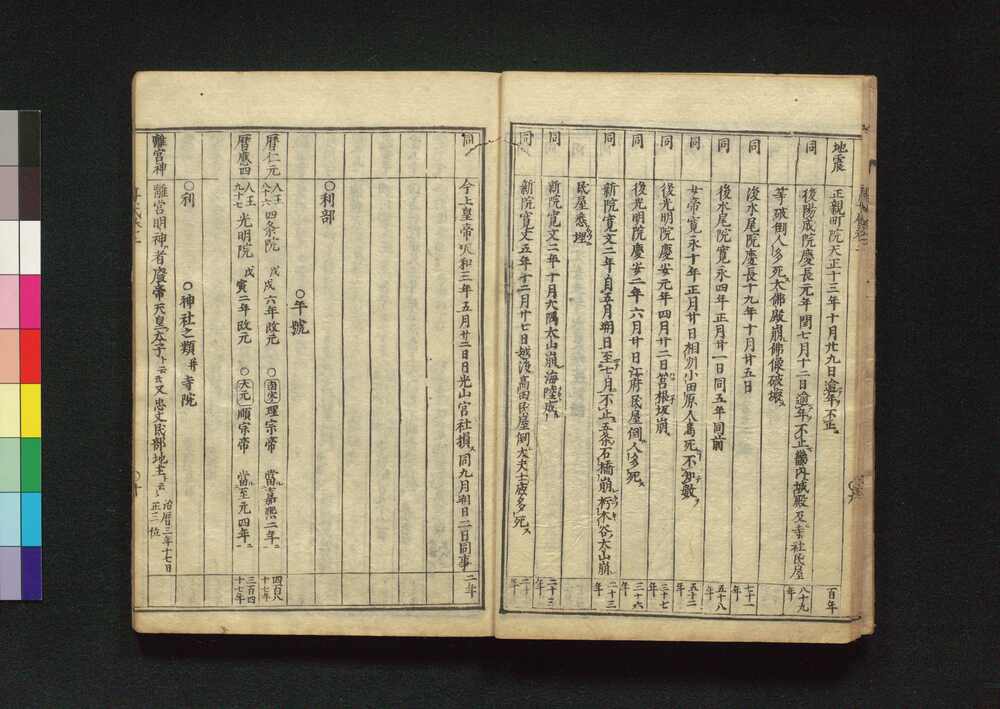 地震 正親町院天正十三年十月廿九日逾年不止 百年
同 後陽成院慶長元年閏七月十二日逾年不止畿内城殿及寺社民屋 八十九年
等破倒人多死大佛殿崩佛像破壞
同 後水尾院慶長十九年十月廿五日 七十一年
同 後水尾院寛永四年正月廿一日同五年同前 五十八年
同 女帝寛永十年正月廿日相州小田原人馬死不知數 五十二年
同 後光明院慶安元年四月廿二日筥根坂崩 三十七年
同 後光明院慶安二年六月廿日江府民屋倒人多死 三十六年
同 新院寛文二年五月朔日至七月不止五条石橋崩朽木谷大山崩 二十三年
民屋悉埋
同 新院寛文二年十月大隅太山崩海陸成 二十三年
同 新院寛文五年十二月廿七日越後高田民屋倒大夫士歳多死 二十年
同 今上皇帝天和三年五月廿二日日光山宮社損同九月朔日二日同事 二年
○利部
○年號
暦仁元 人王八十六 四条院 戊戌六年改元 ○南宋理宗帝 當嘉熙二年 四百八十七年
暦應四 人王九十七 光明院 戊寅二年改元 ○大元順宗帝 當至元四年 三百四十七年
○神社之類并寺院
○利
離宮神 離宮明神者廢帝天皇太子ト云云又忠文民部地主ト云云 治暦三年十七日正三位